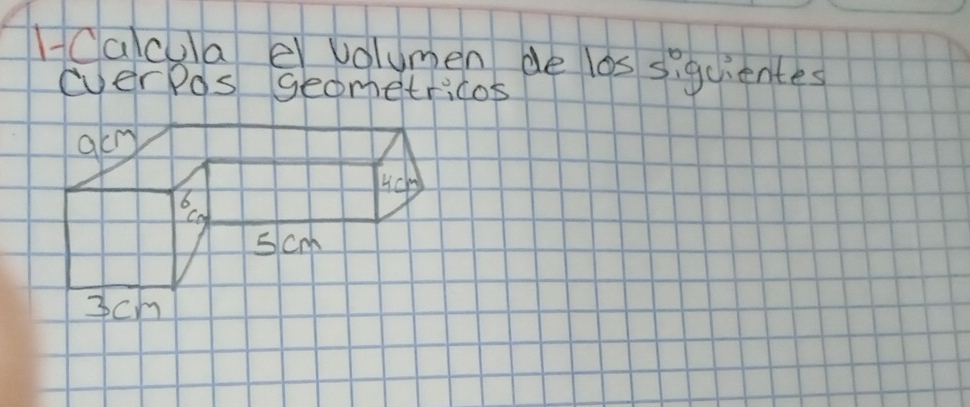 1-Calcula el volumen de los siguientes
cuerpos geometricos
9cm
6
cm
4cm
5cm
3cm